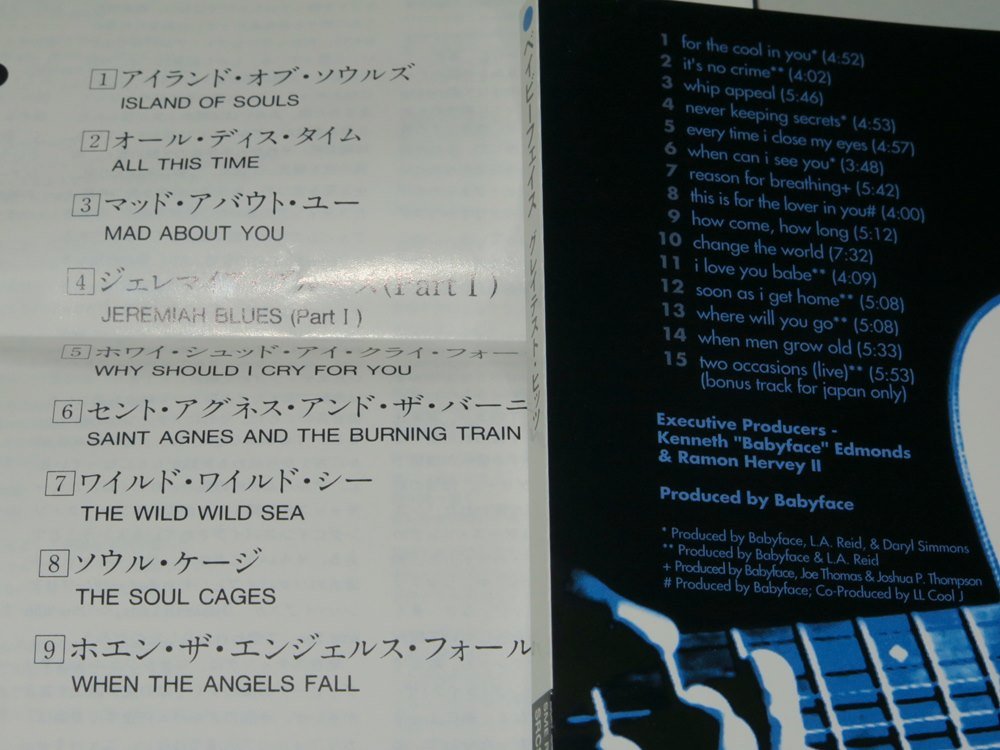 1 アイランド・オブ・ソウルズ
ISLAND OF SOULS
2 オール・ディス・タイム
ALL THIS TIME
3 マッド・アバウト・ユー
MAD ABOUT YOU
4 ジェレマイア・ブルース(Part I)
JEREMIAH BLUES (Part I)
5 ホワイ・シュッド・アイ・クライ・フォー
WHY SHOULD I CRY FOR YOU
6 セント・アグネス・アンド・ザ・バーニ
SAINT AGNES AND THE BURNING TRAIN
7 ワイルド・ワイルド・シー
THE WILD WILD SEA
8 ソウル・ケージ
THE SOUL CAGES
9 ホエン・ザ・エンジェルス・フォール
WHEN THE ANGELS FALL
ベイビーフェイス グレイテスト・ヒッツ
1 for the cool in you* (4:52)
2 it's no crime** (4:02)
3 whip appeal (5:46)
4 never keeping secrets* (4:53)
5 every time i close my eyes (4:57)
6 when can i see you* (3:48)
7 reason for breathing+ (5:42)
8 this is for the lover in you# (4:00)
9 how come, how long (5:12)
10 change the world (7:32)
11 i love you babe** (4:09)
12 soon as i get home** (5:08)
13 where will you go** (5:08)
14 when men grow old (5:33)
15 two occasions (live)** (5:53)
(bonus track for japan only)
Executive Producers -
Kenneth "Babyface" Edmonds
& Ramon Hervey II
Produced by Babyface
* Produced by Babyface, L.A. Reid, & Daryl Simmons
** Produced by Babyface & L.A. Reid
+ Produced by Babyface, Joe Thomas & Joshua P. Thompson
# Produced by Babyface; Co-Produced by LL Cool J